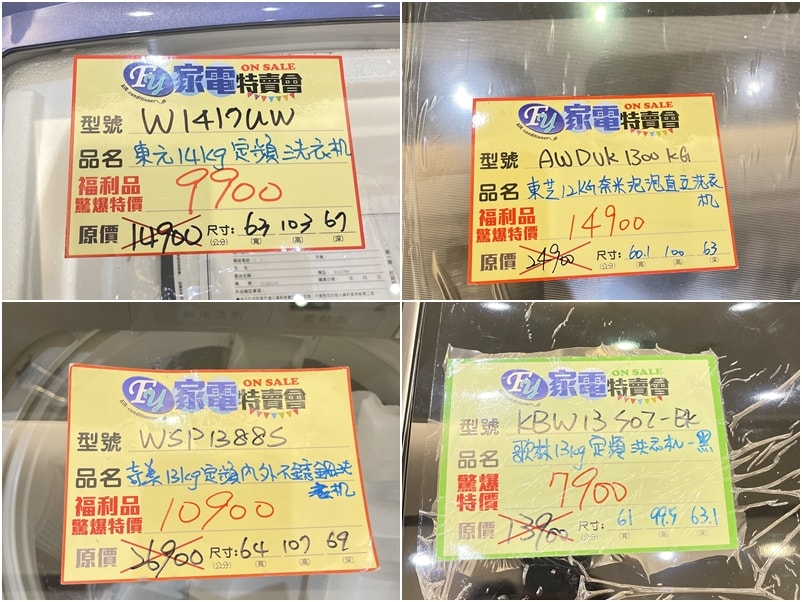 ON SALE
Fu 家電特賣會
Air conditioner
型號 W1417UW
品名 東元14kg定頻洗衣机
福利品
驚爆特價 9900
原價 14900 尺寸: 63 103 67
(公分) (寬) (高) (深)
ON SALE
Fu 家電特賣會
Air conditioner
型號 AWDUK1300KG
品名 東芝12KG奈米泡泡直立洗衣
机
福利品
驚爆特價 14900
原價 24900 尺寸: 60.1 100 63
(公分) (寬) (高) (深)
ON SALE
Fu 家電特賣會
Air conditioner
型號 WSP1388S
品名 奇美13kg定頻內外不銹鋼洗
衣机
福利品
驚爆特價 10900
原價 26900 尺寸: 64 107 69
(公分) (寬) (高) (深)
ON SALE
Fu 家電特賣會
Air conditioner
型號 KBW13S07-BK
品名 歌林13kg定頻洗衣机-黑
驚爆
特價 7900
原價 13900 尺寸: 61 99.9 63.1
(公分) (寬) (高) (深)